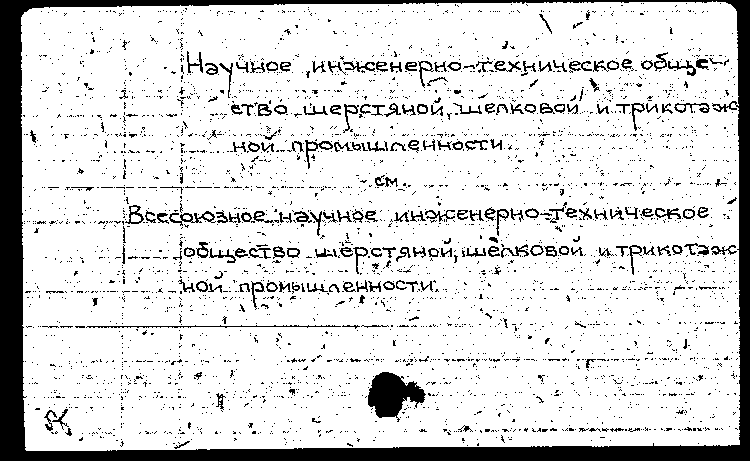 Научное инженерно-техническое общес-
ство шерстяной, шелковой и трикотаж
ной промышленности
см.
Всесоюзное научное инженерно-техническое
общество шерстяной, шелковой и трикотаж
ной промышленности.